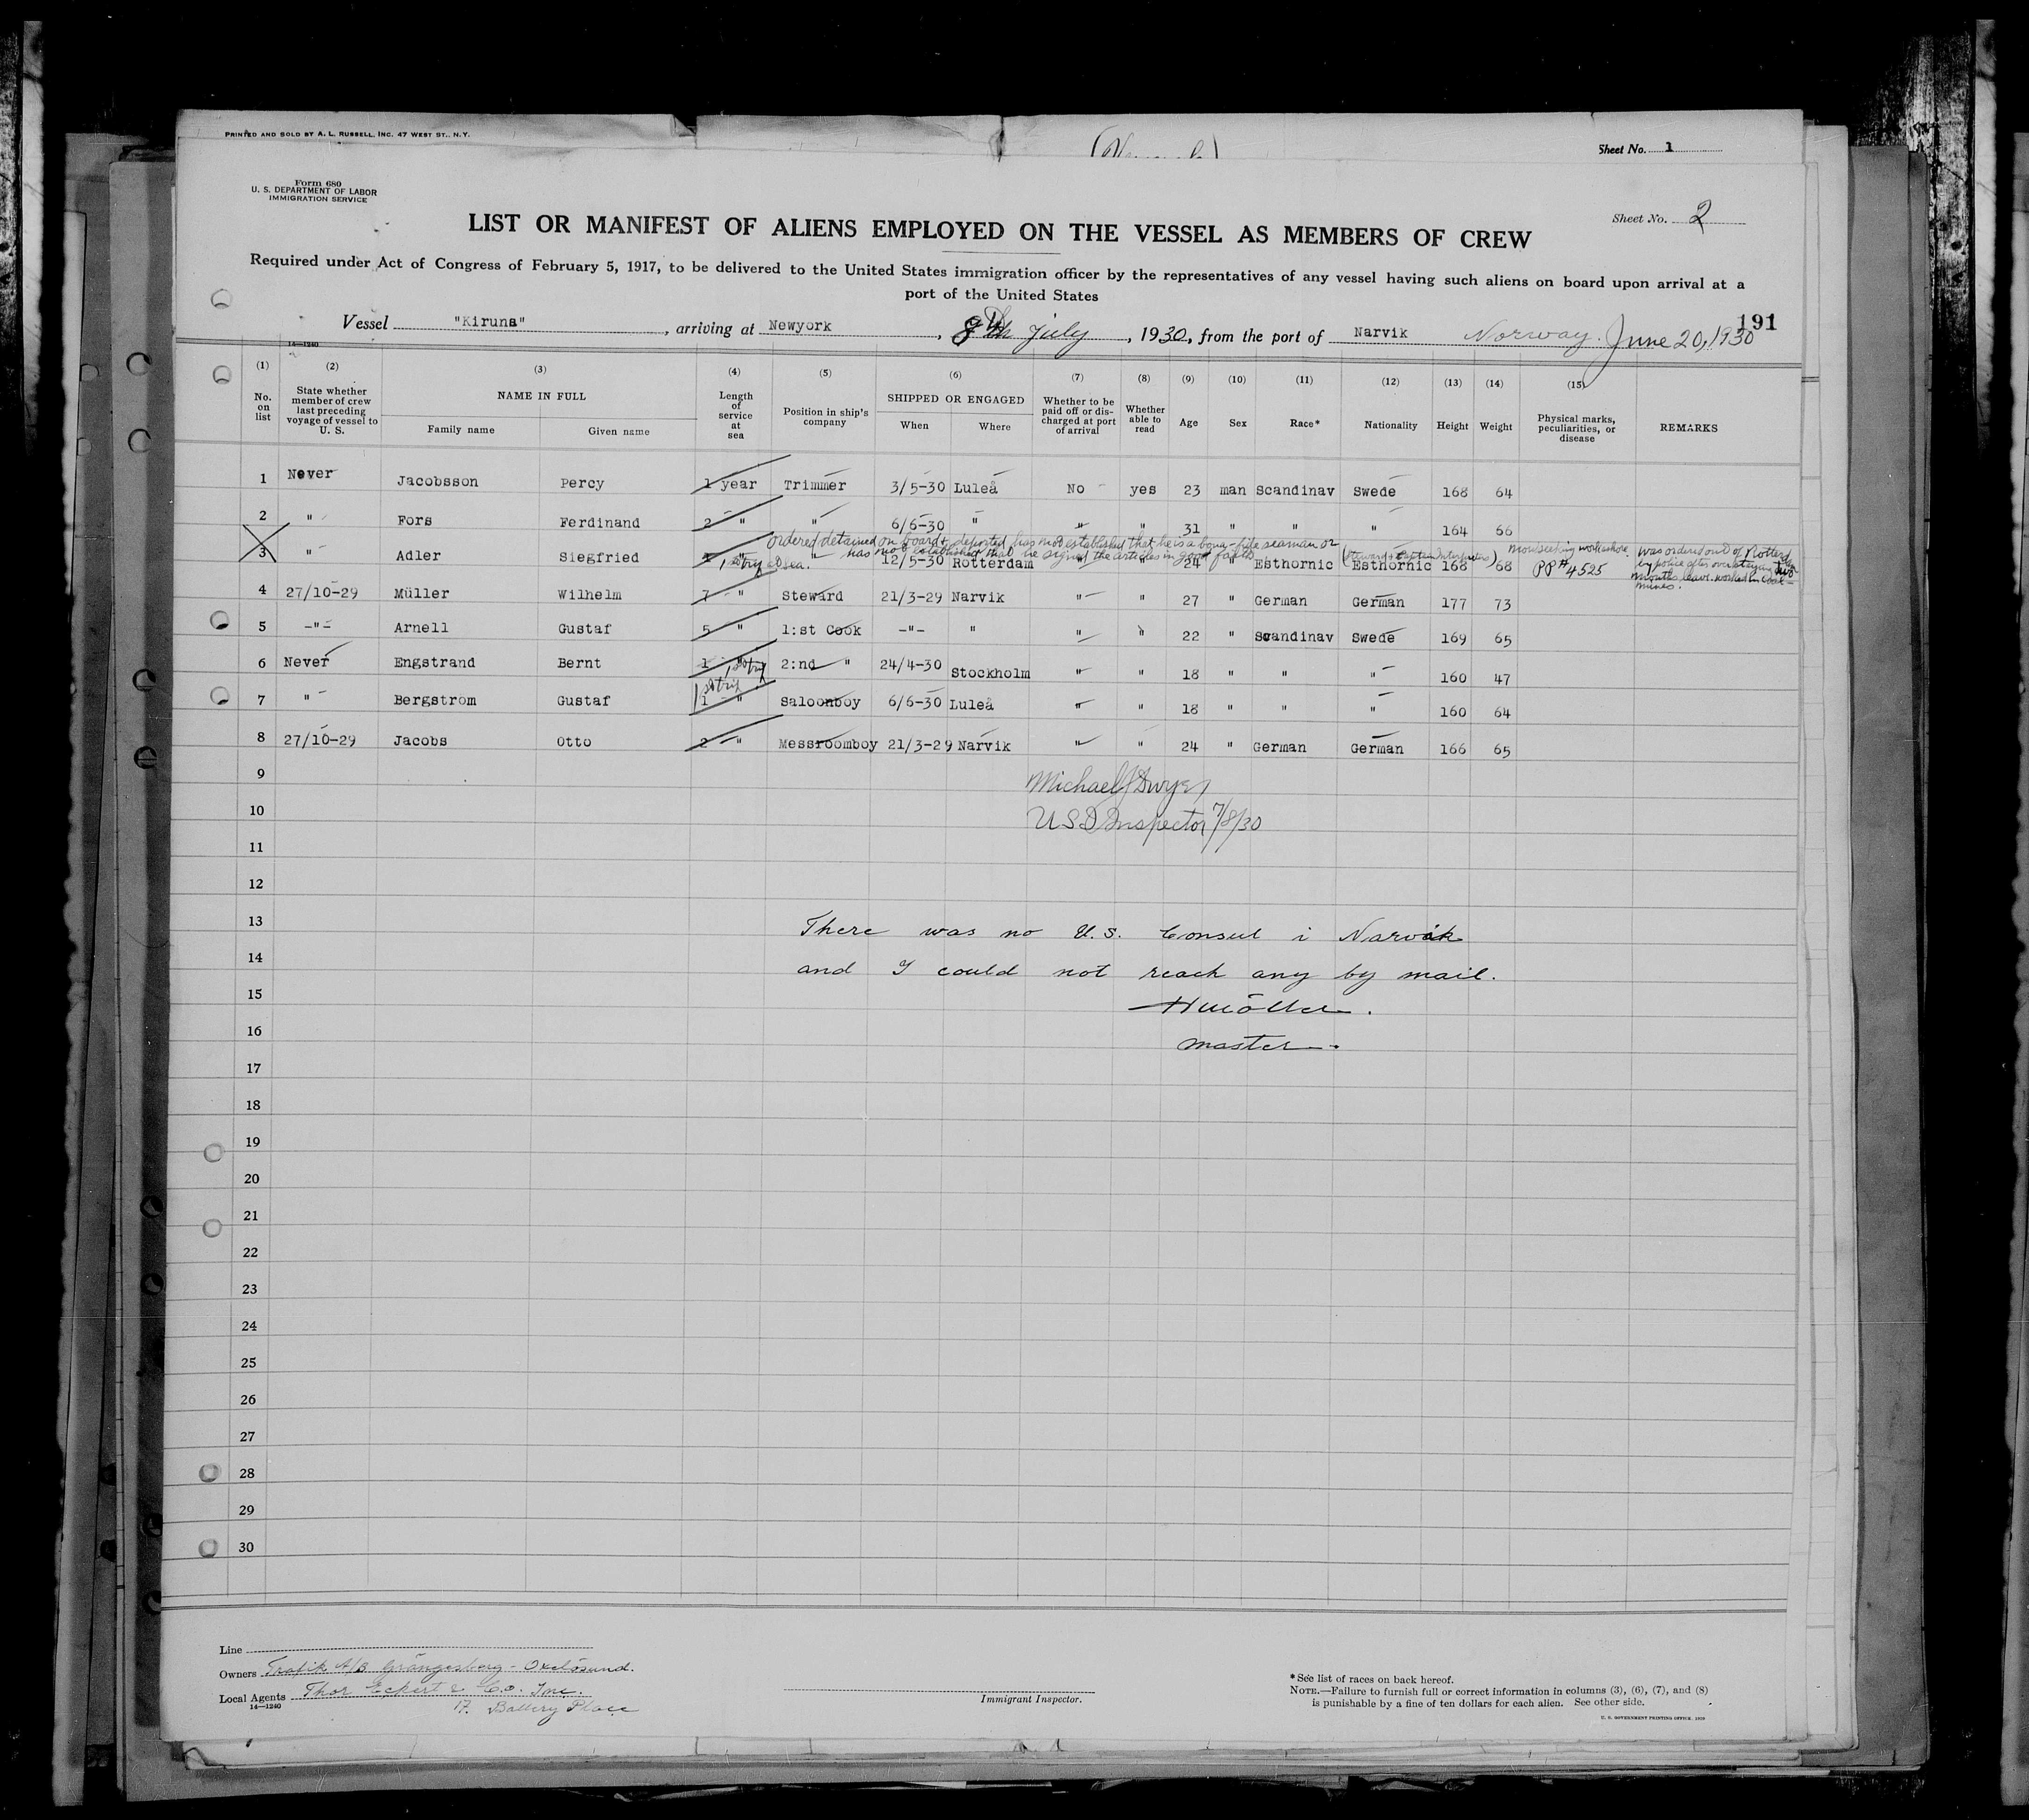 PRINTED AND SOLD BY A. L. RUSSELL, INC. 47 WEST ST., N. Y.
Sheet No. 1
Form 680
U. S. DEPARTMENT OF LABOR
IMMIGRATION SERVICE
Sheet No. 2
LIST OR MANIFEST OF ALIENS EMPLOYED ON THE VESSEL AS MEMBERS OF CREW
Required under Act of Congress of February 5, 1917, to be delivered to the United States immigration officer by the representatives of any vessel having such aliens on board upon arrival at a
port of the United States
191
Vessel "Kiruna", arriving at Newyork, 8th July, 1930, from the port of Narvik Norway. June 20, 1930
14—1240
(1) (2) (3) (4) (5) (6) (7) (8) (9) (10) (11) (12) (13) (14) (15)
No. on list State whether member of crew last preceding voyage of vessel to U. S. NAME IN FULL Family name Given name Length of service at sea Position in ship's company SHIPPED OR ENGAGED When Where Whether to be paid off or discharged at port of arrival Whether able to read Age Sex Race* Nationality Height Weight Physical marks, peculiarities, or disease REMARKS
1 Never Jacobsson Percy 1 year Trimmer 3/5-30 Luleå No yes 23 man Scandinav Swede 168 64
2 " Fors Ferdinand 2 " " 6/6-30 " " " 31 " " " 164 66
ordered detained on board & deported, has not established that he is a bona-fide seaman or
has not established that he signed the articles in good faith
3 " Adler Siegfried " 1st trip at sea. " 12/5-30 Rotterdam " " 24 " Esthornic Esthornic 168 68 PP# 4525
was ordered out of Rotterdam
by police after overstaying two
months leave. worked in coal-
mines.
4 27/10-29 Müller Wilhelm 7 " Steward 21/3-29 Narvik " " 27 " German German 177 73
5 -"- Arnell Gustaf 5 " 1:st Cook -"- " " " 22 " Scandinav Swede 169 65
6 Never Engstrand Bernt 1 " 1st trip 2:nd " 24/4-30 Stockholm " " 18 " " " 160 47
7 " Bergstrom Gustaf 1 " 1st trip Saloonboy 6/6-30 Luleå " " 18 " " " 160 64
8 27/10-29 Jacobs Otto 2 " Messroomboy 21/3-29 Narvik " " 24 " German German 166 65
9
Michael J Dwyer
10
U S I Inspector 7/8/30
11
12
13
There was no U.S. Consul i Narvik
14
and I could not reach any by mail.
15
HMöller.
16
master.
17
18
19
20
21
22
23
24
25
26
27
28
29
30
Line
Owners Trafik A/B Grängesberg - Oxelösund.
Local Agents Thor Eckert & Co. Inc.
14—1240
17. Battery Place
Immigrant Inspector.
*See list of races on back hereof.
NOTE.—Failure to furnish full or correct information in columns (3), (6), (7), and (8)
is punishable by a fine of ten dollars for each alien. See other side.
U. S. GOVERNMENT PRINTING OFFICE: 1929